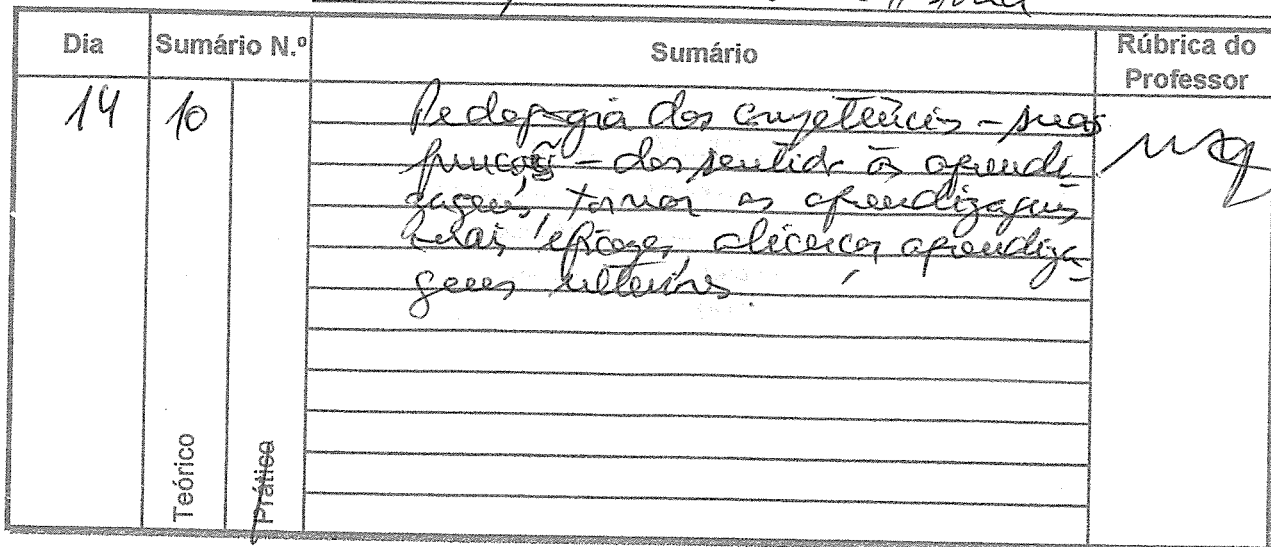 Dia
Sumário N.º
Sumário
Rúbrica do
Professor
14
10
Pedagogia das competências - suas
funções - dar sentido às aprendi
zagens, tornar as aprendizagens
mais eficazes, alicerçar aprendiza-
gens ulteriores.
Teórico
Prático